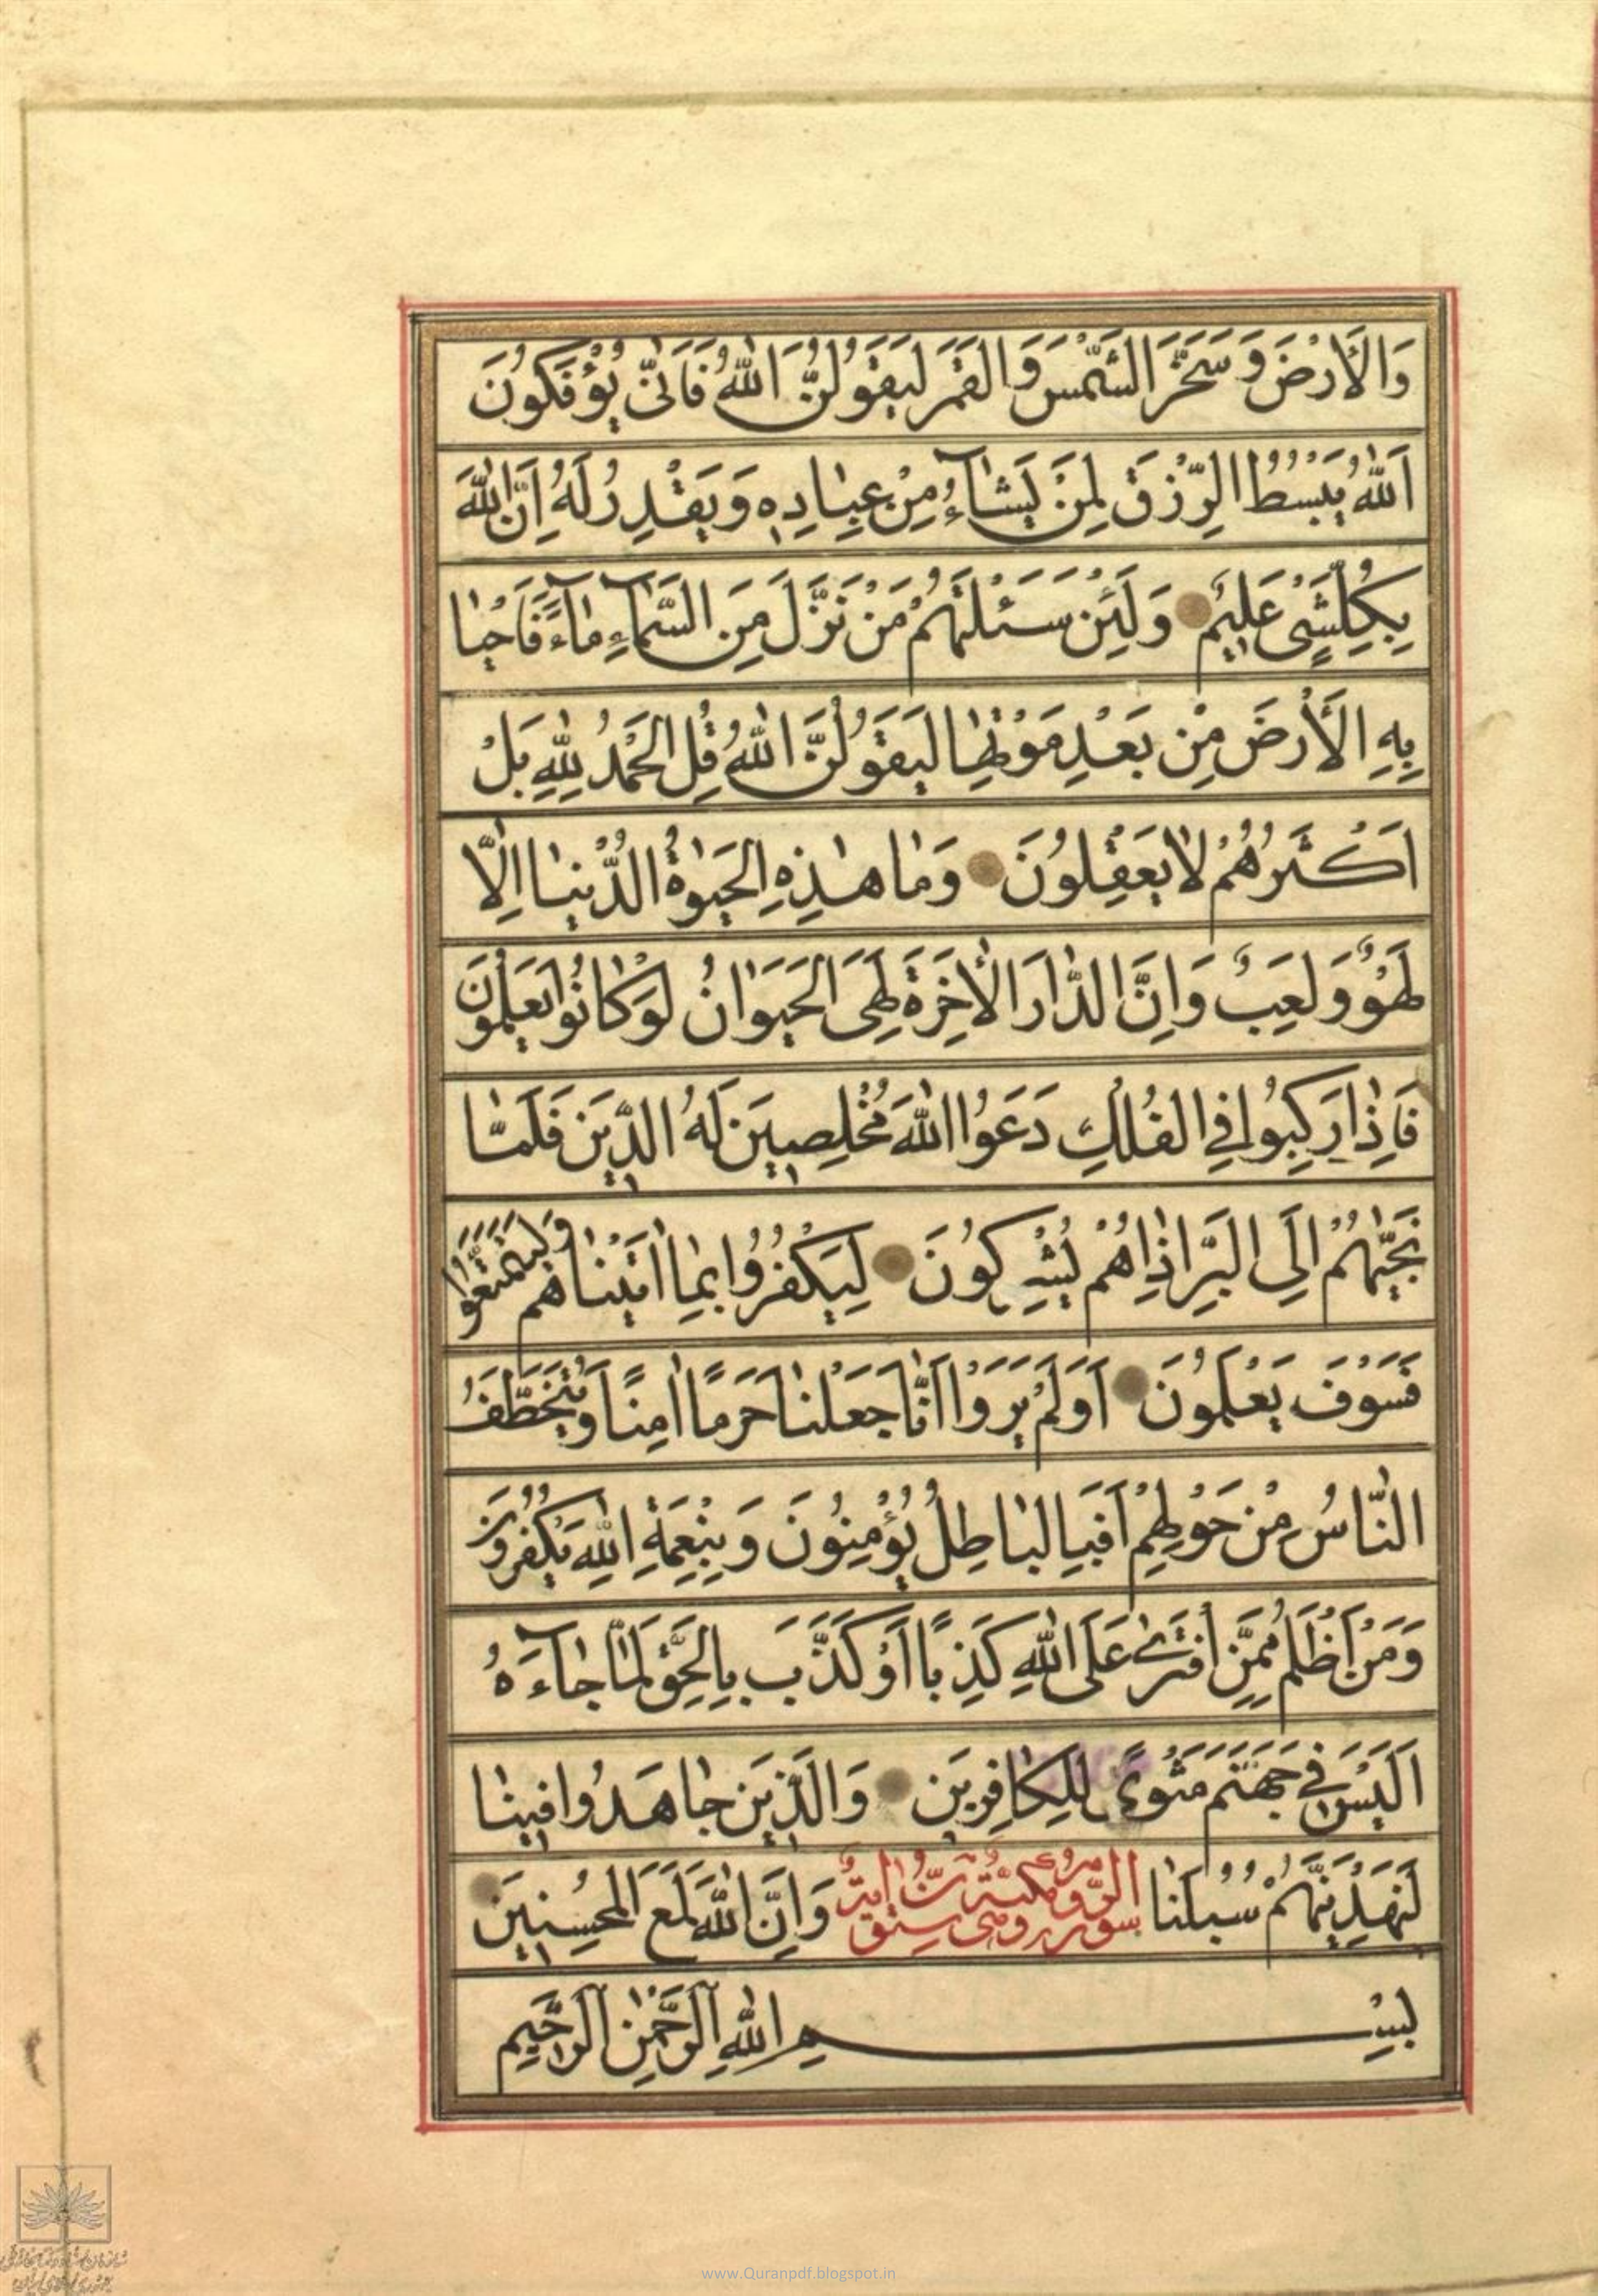 وَالْأَرْضَ وَسَخَّرَ الشَّمْسَ وَالْقَمَرَ لَيَقُولُنَّ اللّٰهُ فَاَنّٰى يُؤْفَكُونَ
اَللّٰهُ يَبْسُطُ الرِّزْقَ لِمَنْ يَشٰٓاءُ مِنْ عِبٰادِهٖ وَيَقْدِرُ لَهُ اِنَّ اللّٰهَ
بِكُلِّ شَیْءٍ عَلٖيمٌ وَلَئِنْ سَئَلْتَهُمْ مَنْ نَزَّلَ مِنَ السَّمٰٓاءِ مٰٓاءً فَاَحْيٰا
بِهِ الْأَرْضَ مِنْ بَعْدِ مَوْتِهٰا لَيَقُولُنَّ اللّٰهُ قُلِ الْحَمْدُ لِلّٰهِ بَلْ
اَكْثَرُهُمْ لٰا يَعْقِلُونَ وَمٰا هٰذِهِ الْحَيٰوةُ الدُّنْيٰا اِلّٰا
لَهْوٌ وَلَعِبٌ وَاِنَّ الدّٰارَ الْأٰخِرَةَ لَهِیَ الْحَيَوٰانُ لَوْ كٰانُوا يَعْلَمُونَ
فَاِذٰا رَكِبُوا فِی الْفُلْكِ دَعَوُا اللّٰهَ مُخْلِصٖينَ لَهُ الدّٖينَ فَلَمّٰا
نَجّٰيهُمْ اِلَى الْبَرِّ اِذٰا هُمْ يُشْرِكُونَ لِيَكْفُرُوا بِمٰا اٰتَيْنٰاهُمْ وَلِيَتَمَتَّعُوا
فَسَوْفَ يَعْلَمُونَ اَوَلَمْ يَرَوْا اَنّٰا جَعَلْنٰا حَرَمًا اٰمِنًا وَيُتَخَطَّفُ
النّٰاسُ مِنْ حَوْلِهِمْ اَفَبِالْبٰاطِلِ يُؤْمِنُونَ وَبِنِعْمَةِ اللّٰهِ يَكْفُرُونَ
وَمَنْ اَظْلَمُ مِمَّنِ افْتَرٰى عَلَى اللّٰهِ كَذِبًا اَوْ كَذَّبَ بِالْحَقِّ لَمّٰا جٰٓاءَهُ
اَلَيْسَ فٖی جَهَنَّمَ مَثْوًى لِلْكٰافِرٖينَ وَالَّذٖينَ جٰاهَدُوا فٖينٰا
لَنَهْدِيَنَّهُمْ سُبُلَنٰا سورة الروم مكية ستون اية وَاِنَّ اللّٰهَ لَمَعَ الْمُحْسِنٖينَ
بِسْمِ اللّٰهِ الرَّحْمٰنِ الرَّحٖيمِ
www.Quranpdf.blogspot.in